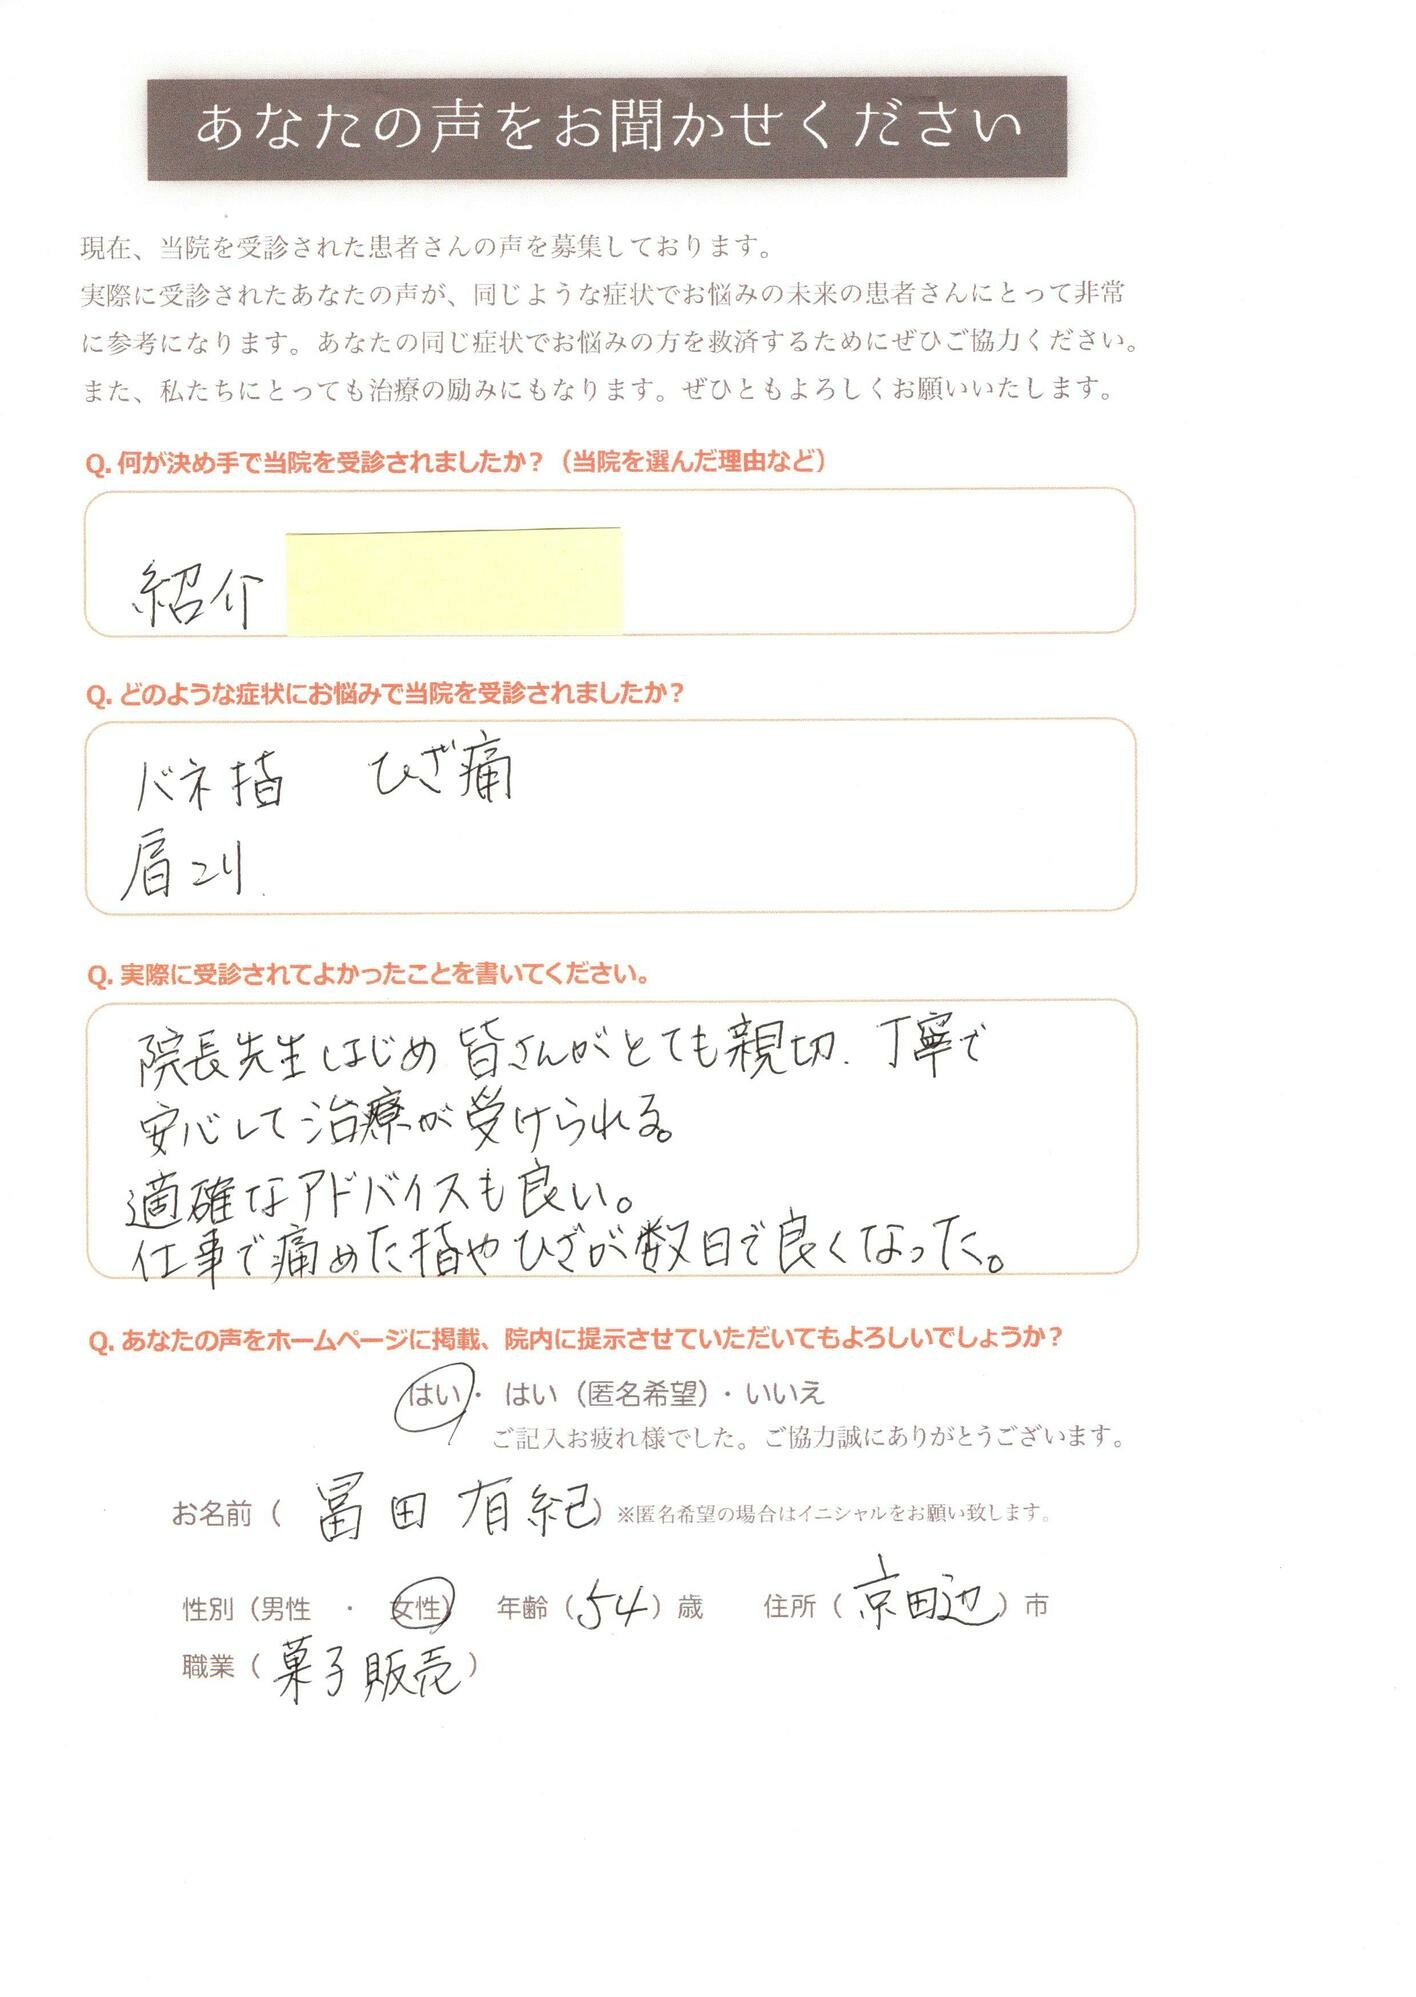 あなたの声をお聞かせください
現在、当院を受診された患者さんの声を募集しております。
実際に受診されたあなたの声が、同じような症状でお悩みの未来の患者さんにとって非常
に参考になります。あなたの同じ症状でお悩みの方を救済するためにぜひご協力ください。
また、私たちにとっても治療の励みにもなります。ぜひともよろしくお願いいたします。
Q. 何が決め手で当院を受診されましたか？（当院を選んだ理由など）
紹介
Q. どのような症状にお悩みで当院を受診されましたか？
バネ指 ひざ痛
肩こり
Q. 実際に受診されてよかったことを書いてください。
院長先生はじめ皆さんがとても親切、丁寧で
安心して治療が受けられる。
適確なアドバイスも良い。
仕事で痛めた指やひざが数日で良くなった。
Q. あなたの声をホームページに掲載、院内に提示させていただいてもよろしいでしょうか？
はい・ はい（匿名希望）・いいえ
ご記入お疲れ様でした。ご協力誠にありがとうございます。
お名前（ 冨田 有紀）※匿名希望の場合はイニシャルをお願い致します。
性別（男性 ・ 女性） 年齢（54）歳 住所（京田辺）市
職業（菓子販売）